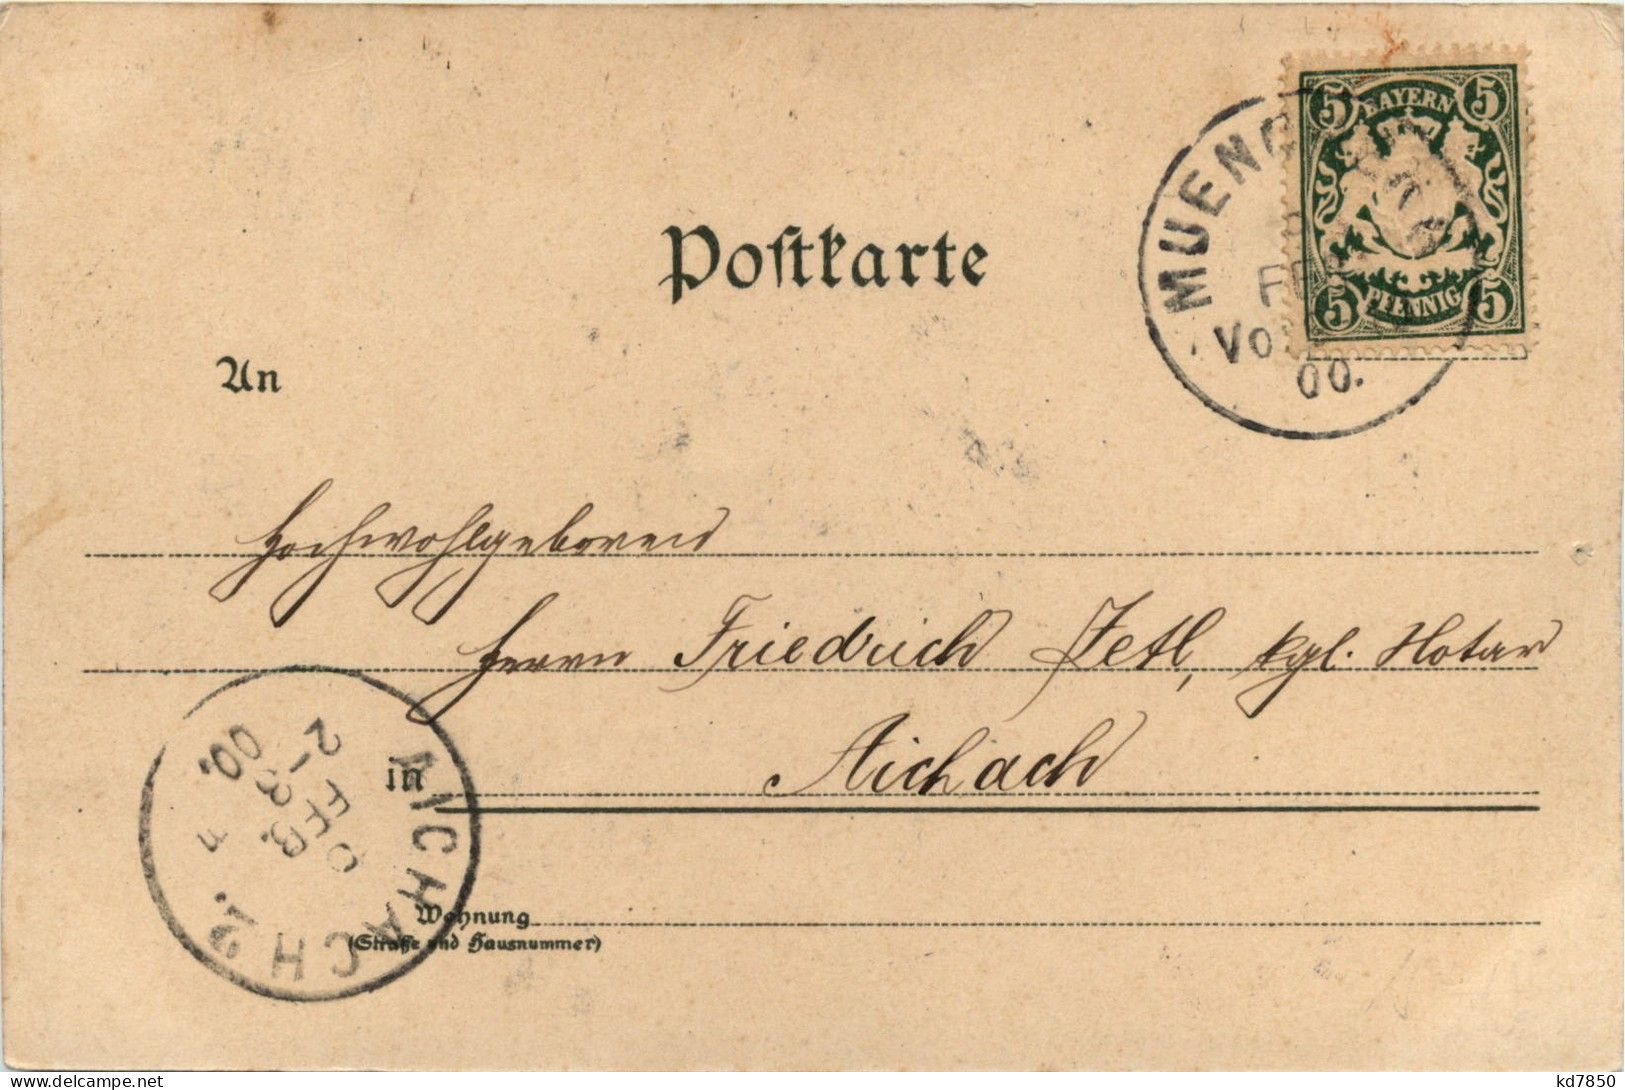 5 BAYERN 5
5 PFENNIG 5
MUENC
FE
Vo
00.
Postkarte
An
Hochwohlgeboren
Herrn Friedrich Zetl, kgl. Notar
in Aichach
AICHACH
FEB.
2-3
00.
Wohnung
(Straße und Hausnummer)
kd7850